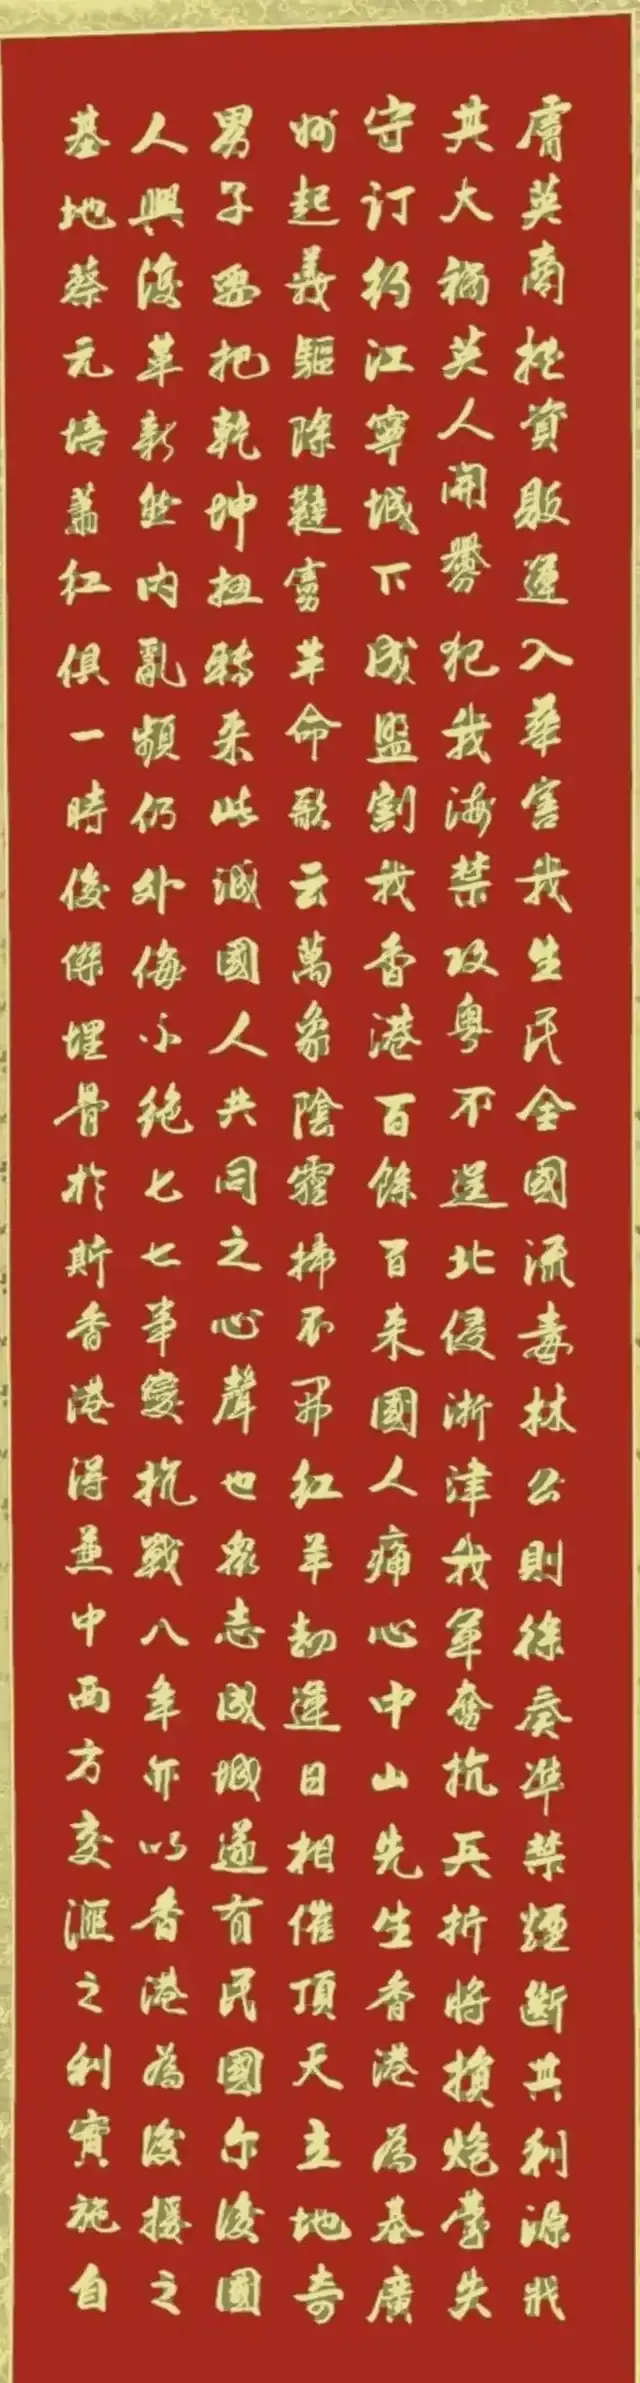 膚英商挾資販運入華害我生民全國流毒林公則徐奏準禁煙斷其利源戕
其大禍英人開釁犯我海禁攻粵不逞北侵浙津我軍奮抗兵折將損炮臺失
守订約江寧城下成盟割我香港百餘百来國人痛心中山先生香港為基廣
州起義驅除韃虜革命歌云萬象陰霾掃不開紅羊劫運日相催頂天立地奇
男子要把乾坤扭轉来此誠國人共同之心聲也眾志成城遂有民國尔後國
人興復革新然内亂頻仍外侮不絶七七事變抗戰八年亦以香港為後援之
基地蔡元培蕭紅俱一時俊傑埋骨於斯香港得兼中西方交匯之利實施自